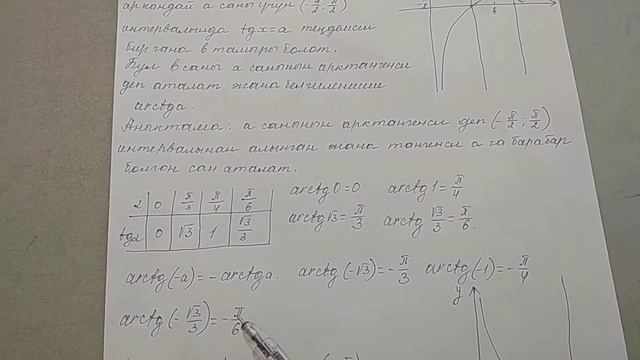 аркандай а саны үчүн (-π/2; π/2)
интервалында tgx=a теңдемеси
бир гана в тамыры болот.
Бул в саны а санынын арктангенси
деп аталат жана белгилениши
arctga.
Аныктама: а санынын арктангенси деп (-π/2; π/2)
интервалынан алынган жана тангенси а га барабар
болгон сан аталат.
2 | 0 | π/3 | π/4 | π/6
tg2 | 0 | √3 | 1 | √3/3
arctg 0 = 0 arctg 1 = π/4
arctg √3 = π/3 arctg √3/3 = π/6.
arctg(-a) = -arctga. arctg(-√3) = -π/3 arctg(-1) = -π/4
arctg(-√3/3) = -π/6
y